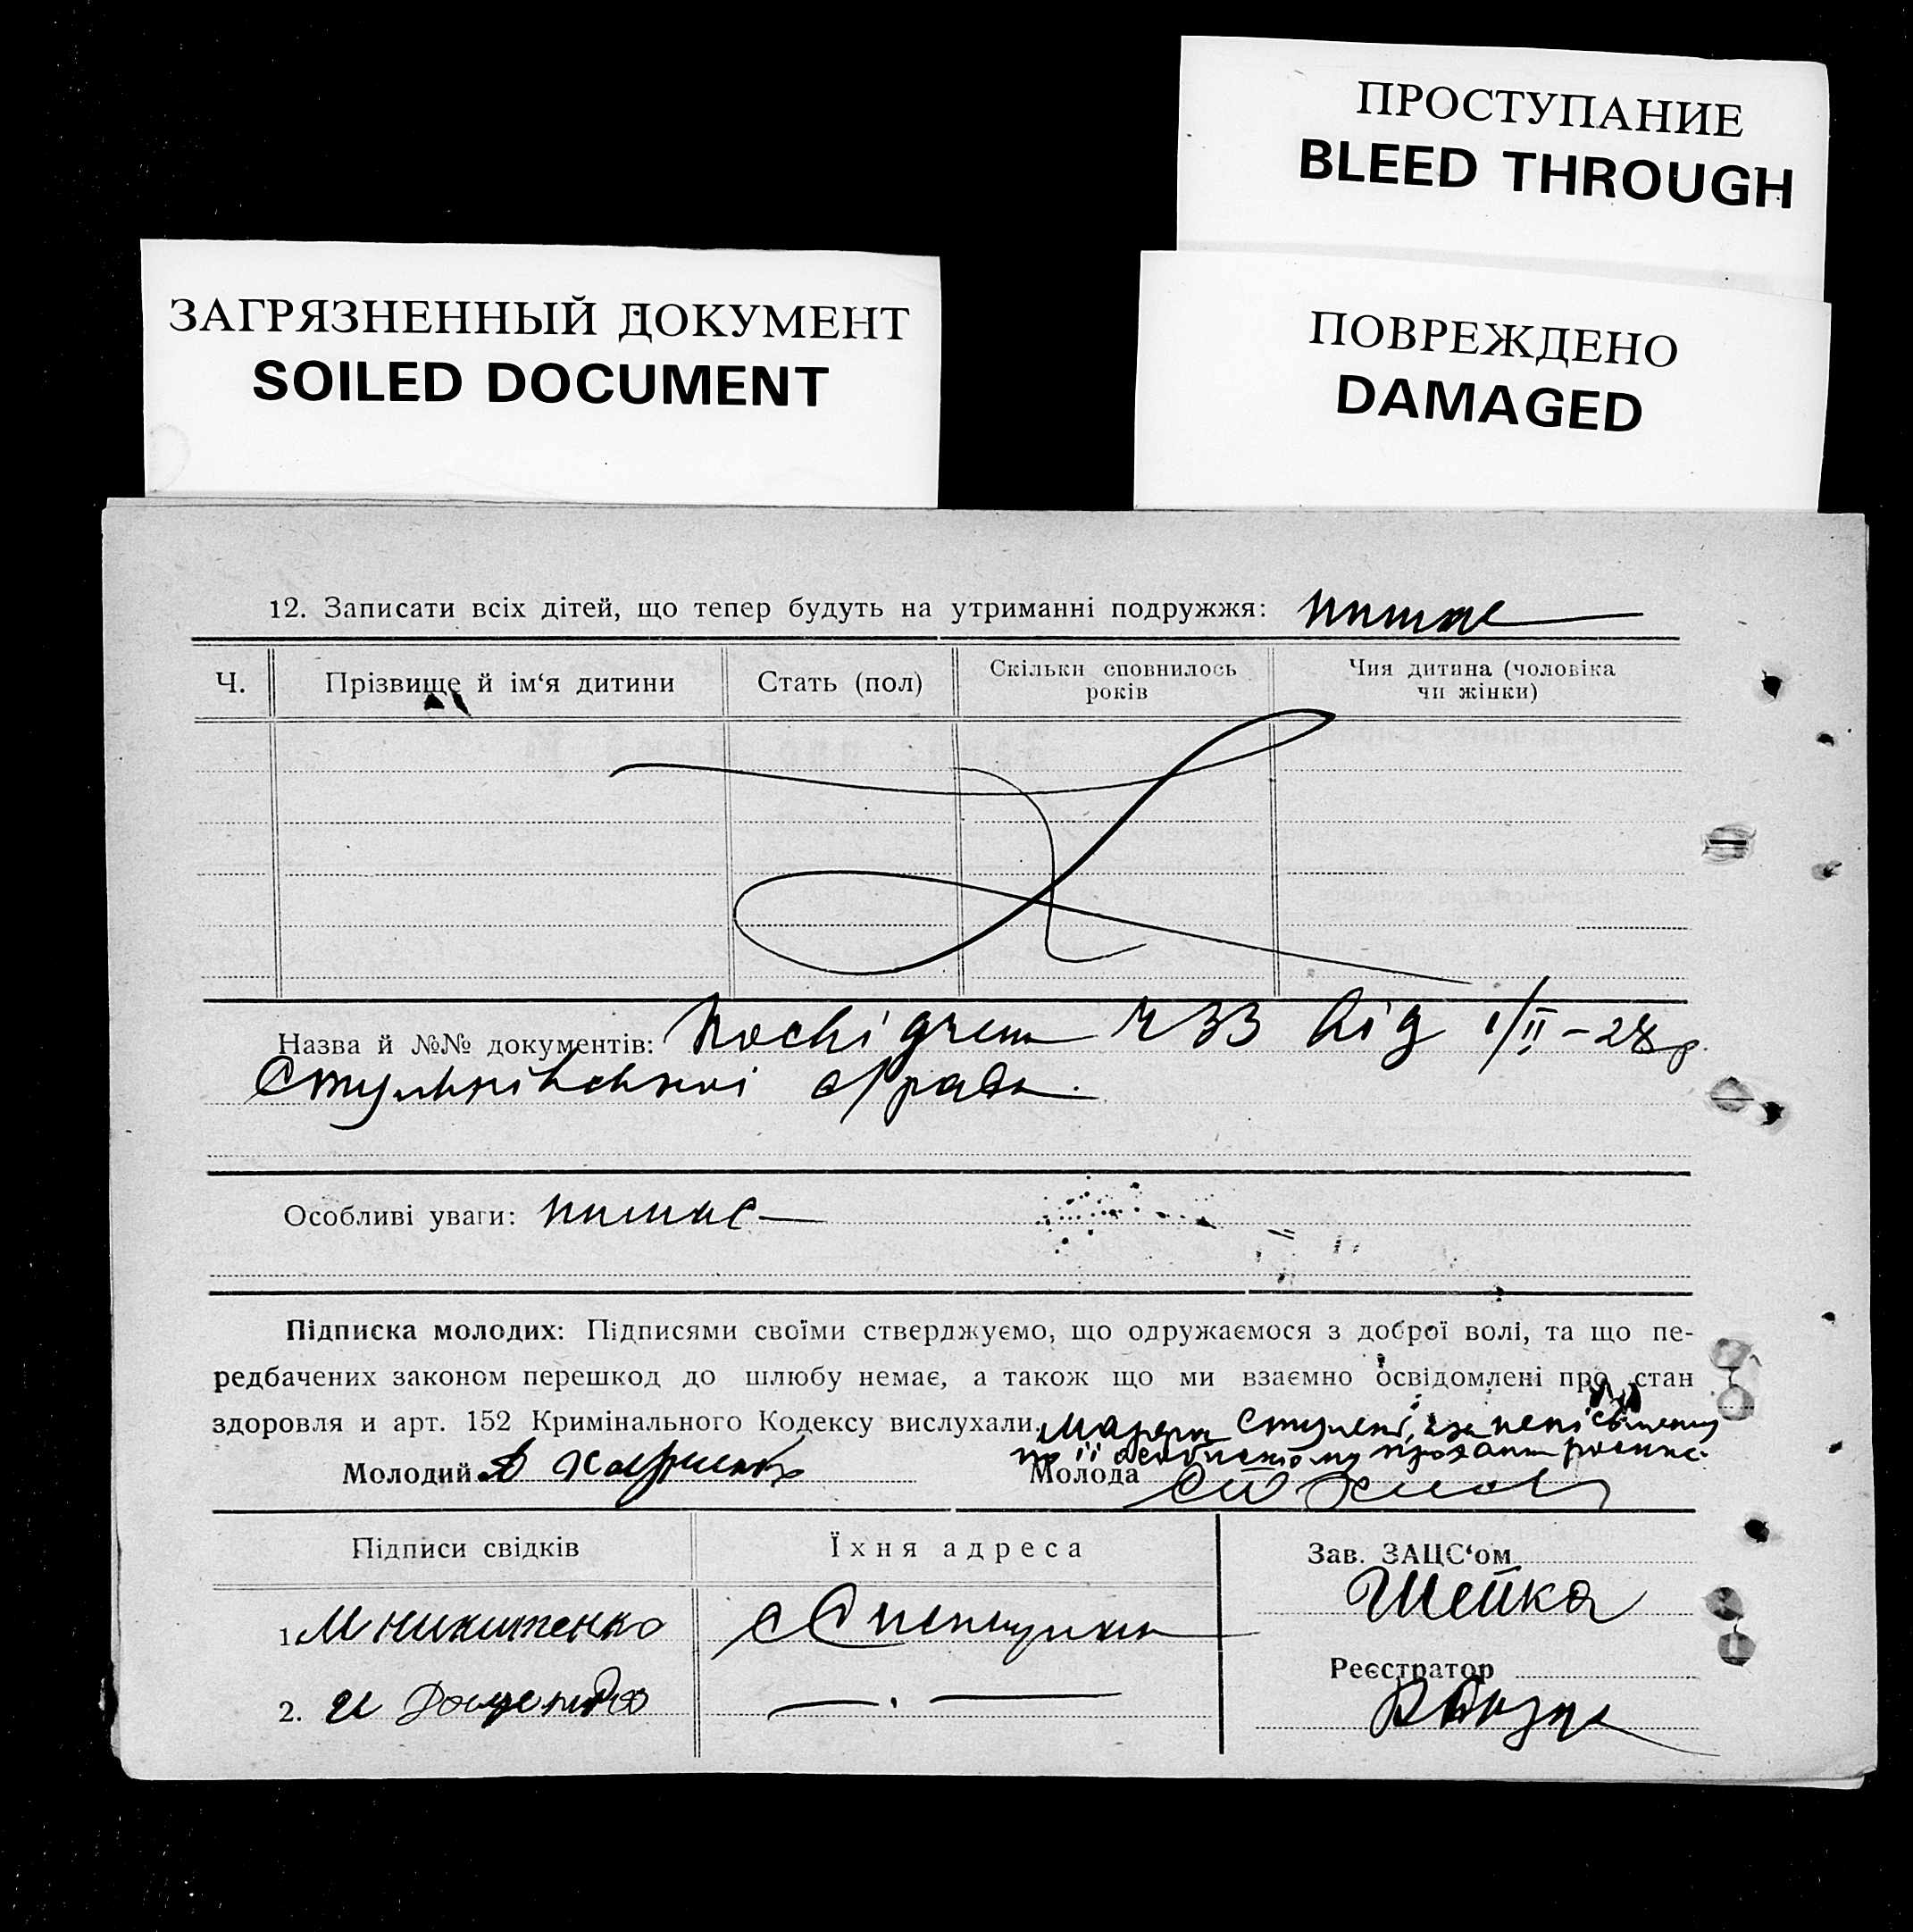 ПРОСТУПАНИЕ
BLEED THROUGH
ЗАГРЯЗНЕННЫЙ ДОКУМЕНТ
SOILED DOCUMENT
ПОВРЕЖДЕНО
DAMAGED
12. Записати всіх дітей, що тепер будуть на утриманні подружжя: немає
Ч.
Прізвище й ім‘я дитини
Стать (пол)
Скільки сповнилось
років
Чия дитина (чоловіка
чи жінки)
Назва й №№ документів: Посвідчен 33 від 1/II – 28 р.
с/ради
Особливі уваги: немає
Підписка молодих: Підписями своїми стверджуємо, що одружаємося з доброї волі, та що пе-
редбачених законом перешкод до шлюбу немає, а також що ми взаємно освідомлені про стан
здоровля и арт. 152 Кримінального Кодексу вислухали
по її особистому
Молодий
Молода
Підписи свідків
Їхня адреса
Зав. ЗАЦС‘ом
Шейка
1. М Никитенко
Реєстратор
2.